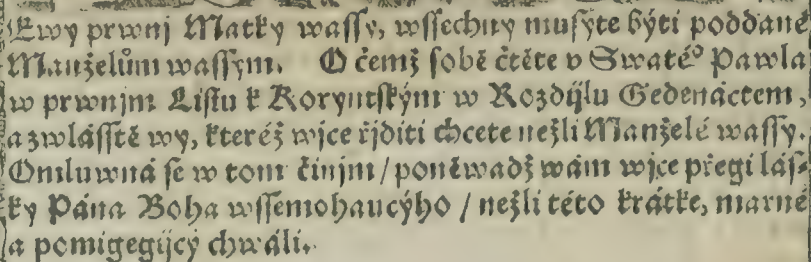 Ewy prwnj Matky wassy, wssechny musýte býti poddané
Manželům wassym. O čemž sobě čtěte v Swaté° Pawla
w prwnjm Listu k Koryntským w Rozdjlu Gedenáctem,
a zwlásstě wy, kteréž wjce řjditi chcete nežli Manželé wassy.
Omluwná se w tom činjm / poněwadž wám wjce přegi lás-
ky Pána Boha wssemohaucýho / nežli této krátké, marné
a pomigegjcý chwáli.